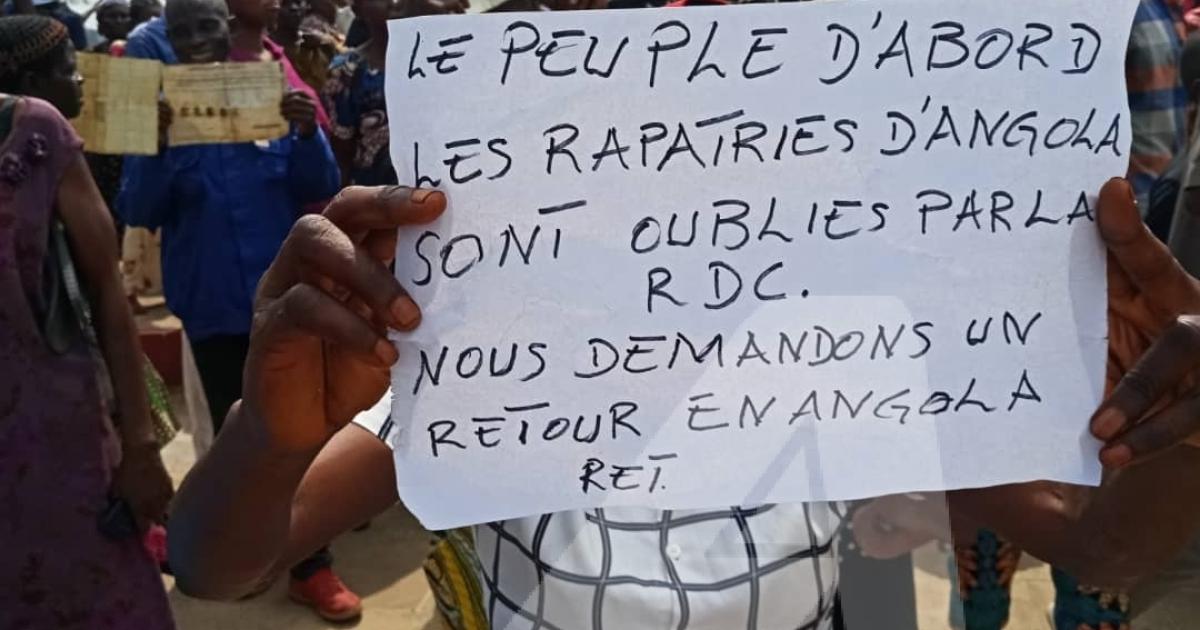 LE PEUPLE D'ABORD
LES RAPATRIES D'ANGOLA
SONT OUBLIES PAR LA
RDC.
NOUS DEMANDONS UN
RETOUR EN ANGOLA
RET.